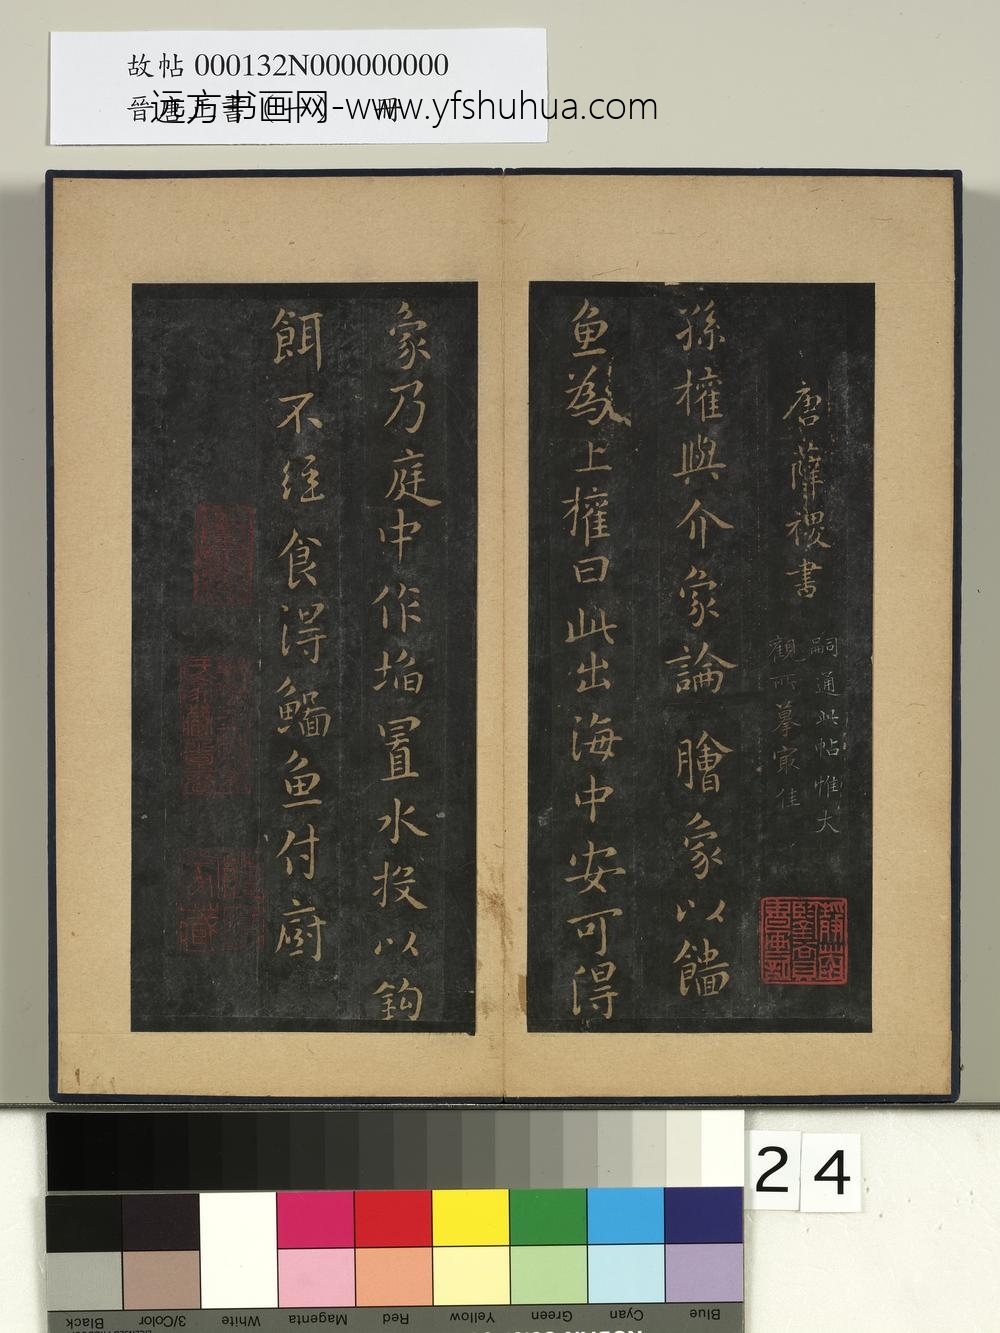 故帖 000132N000000000
远方书画网-www.yfshuhua.com
唐薛稷書
嗣通此帖惟大
觀所摹寂佳
孫權與介象論鱠象以鯔
魚為上權曰此出海中安可得
象乃庭中作埳置水投以鈎
餌不經食得鯔魚付廚
靜菴鑒賞書畫記
24
Black
3/Color
White
Magenta
Red
Yellow
Green
Cyan
Blue